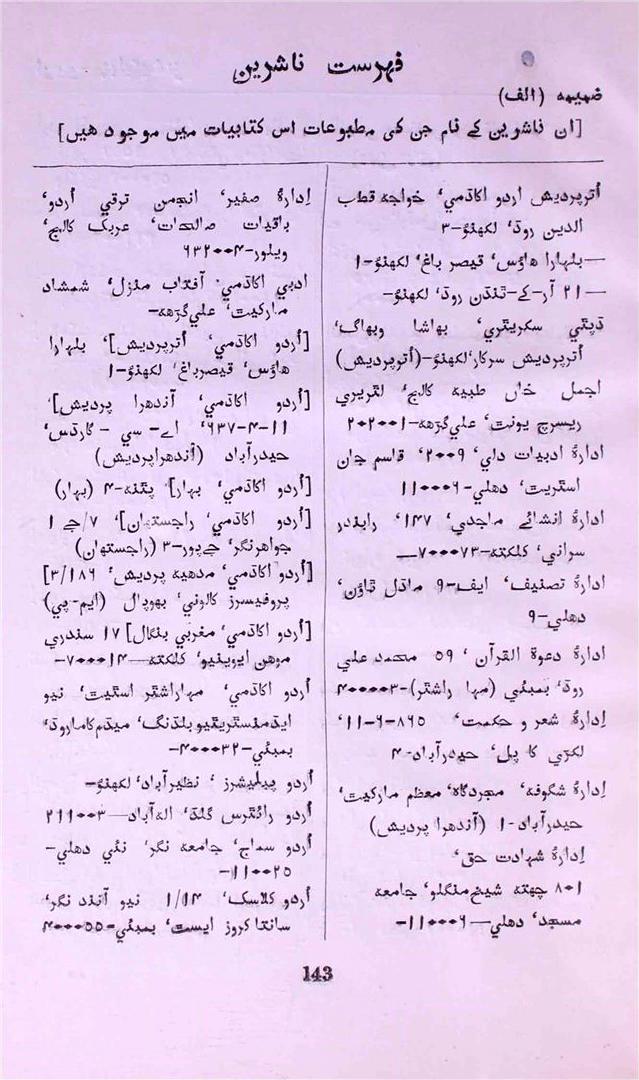 فہرست ناشرین
ضمیمہ (الف)
[ان ناشرین کے نام جن کی مطبوعات اس کتابیات میں موجود ہیں]
اُترپردیش اردو اکاڈمی، خواجہ قطب
الدین روڈ، لکھنؤ-۳
—بلہارا ہاؤس، قیصر باغ، لکھنؤ-۱
—۲۱ آر-کے-ٹنڈن روڈ، لکھنؤ-
ڈپٹی سکریٹری، بھاشا وبھاگ،
اُترپردیش سرکار، لکھنؤ-(اُترپردیش)
اجمل خاں طبیہ کالج، لٹریری
ریسرچ یونٹ، علی گڑھ-۲۰۲۰۰۱
ادارۂ ادبیات دلی، ۲۰۰۹، قاسم جان
اسٹریٹ، دہلی-۱۱۰۰۰۶
ادارۂ انشائے ماجدی، ۱۴۷، رابندر
سرانی، کلکتہ-۷۰۰۰۷۳—
ادارۂ تصنیف، ایف-۹ ماڈل ٹاؤن،
دہلی-۹
ادارۂ دعوۃ القرآن، ۵۹ محمد علی
روڈ، بمبئی (مہا راشٹر)-۴۰۰۰۰۳
ادارۂ شعر و حکمت، ۸۶۵-۶-۱۱،
لکڑی کا پل، حیدرآباد-۴
اِدارۂ شگوفہ، مجردگاہ، معظم مارکیٹ،
حیدرآباد-۱ (آندھرا پردیش)
اِدارۂ شہادت حق،
۸۰۱ چھتہ شیخ منگلو، جامعہ
مسجد، دہلی—۱۱۰۰۰۶-
اِدارۂ صفیر، انجمن ترقی اُردو،
باقیات صالحات، عربک کالج،
ویلور-۶۳۲۰۰۴
ادبی اکاڈمی، آفتاب منزل، شمشاد
مارکیٹ، علی گڑھ-
[اُردو اکاڈمی، اُترپردیش]، بلہارا
ہاؤس، قیصرباغ، لکھنؤ-۱
[اُردو اکاڈمی، آندھرا پردیش]،
۶۳۷-۴-۱۱، اے- سی - گارڈس،
حیدرآباد (آندھراپردیش)
[اُردو اکاڈمی، بہار] پٹنہ-۴ (بہار)
[اُردو اکاڈمی، راجستھان]، ۷/جے ۱
جواہرنگر، جے پور-۳ (راجستھان)
[اُردو اکاڈمی، مدھیہ پردیش، ۳/۱۸۶]
پروفیسرز کالونی، بھوپال (ایم-پی)
[اُردو اکاڈمی، مغربی بنگال] ۱۷ سندری
موہن ایوینیو، کلکتہ-۷۰۰۰۱۴-
اُردو اکاڈمی، مہاراشٹر اسٹیٹ، نیو
ایڈمنسٹریٹیو بلڈنگ، میڈم کاما روڈ،
بمبئی-۴۰۰۰۳۲-
اُردو پبلیشرز، نظیرآباد، لکھنؤ-
اُردو رائٹرس گلڈ، الہ آباد—۲۱۱۰۰۳
اُردو سماج، جامعہ نگر، نئی دہلی-
۱۱۰۰۲۵-
اُردو کلاسک، ۱/۱۴ نیو آنند نگر،
سانتا کروز ایسٹ، بمبئی-۴۰۰۰۵۵
143